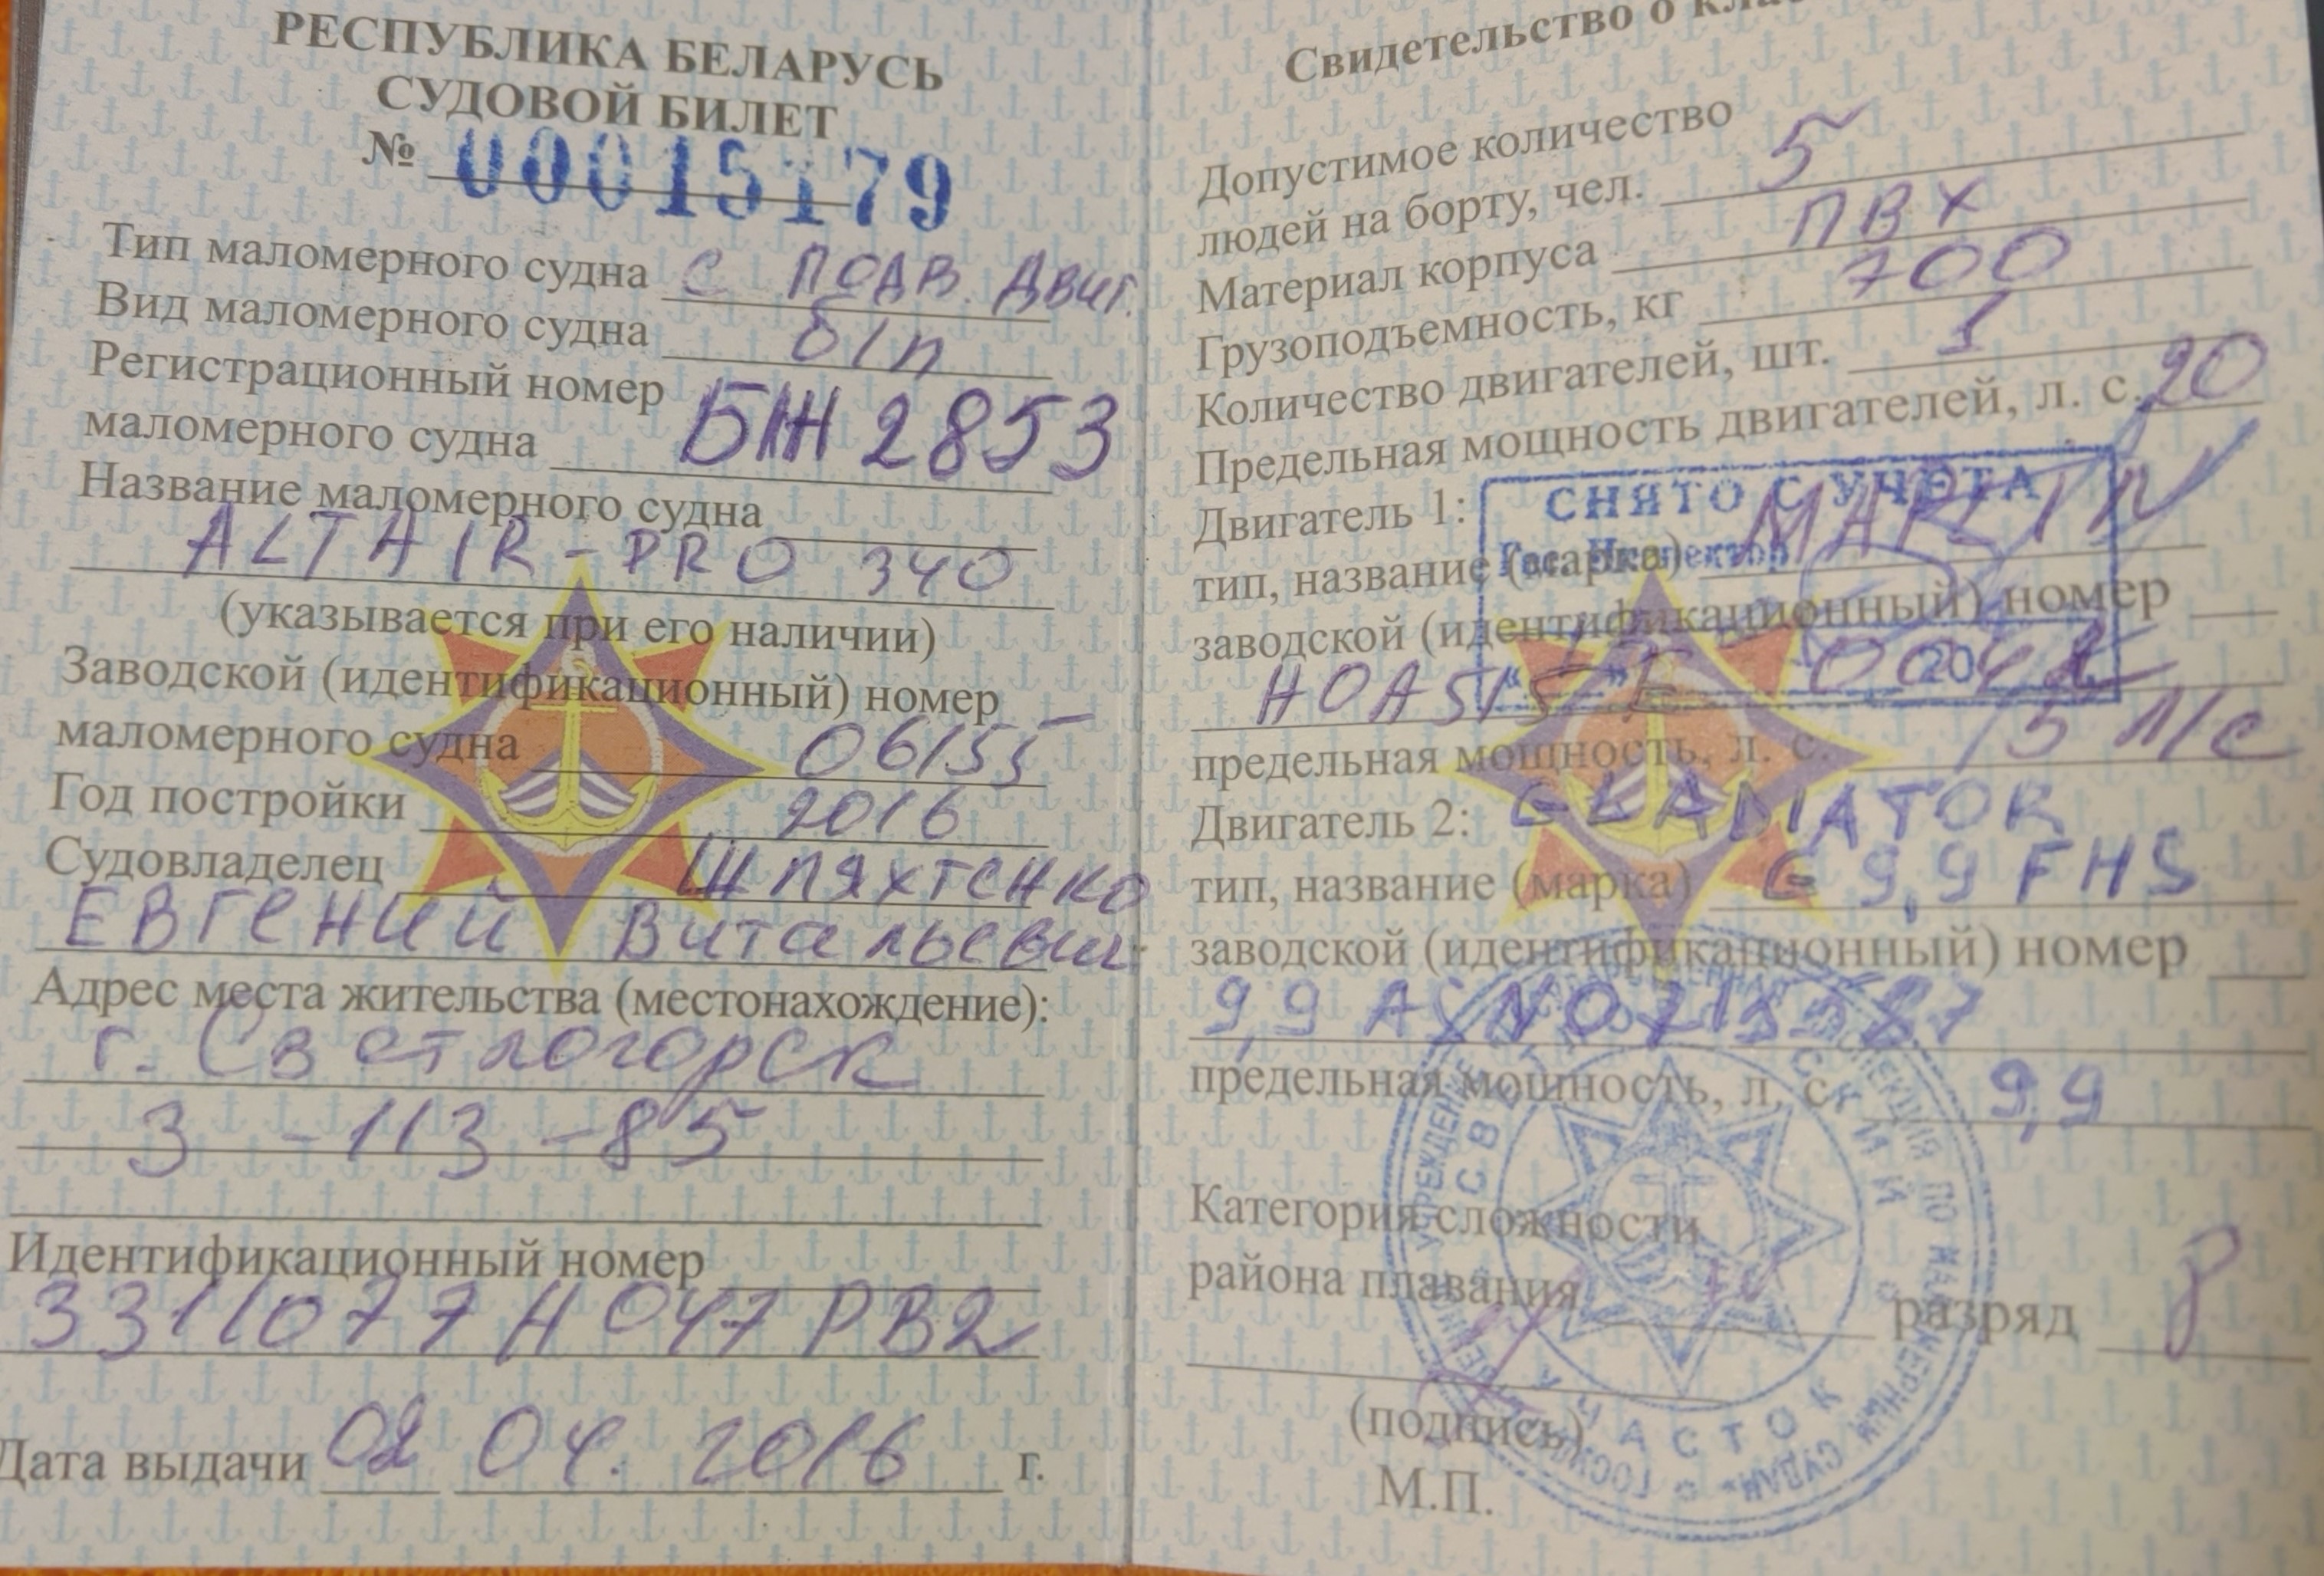 РЕСПУБЛИКА БЕЛАРУСЬ
СУДОВОЙ БИЛЕТ
№ 00015179
Тип маломерного судна с подв. двиг.
Вид маломерного судна б/п
Регистрационный номер
маломерного судна БЖ 2853
Название маломерного судна
ALTAIR-PRO 340
(указывается при его наличии)
Заводской (идентификационный) номер
маломерного судна 06155
Год постройки 2016
Судовладелец Шпяхтенко
Евгений Витальевич
Адрес места жительства (местонахождение):
г. Светлогорск
3 - 113 - 85
Идентификационный номер
3311077H047PB2
Дата выдачи 02 04. 2016 г.
Свидетельство о
Допустимое количество
людей на борту, чел. 5
Материал корпуса ПВХ
Грузоподъемность, кг 700
Количество двигателей, шт. 1
Предельная мощность двигателей, л. с. 20
СНЯТО С УЧЕТА
Двигатель 1: MARLIN
Гос. Инспектор
тип, название (марка)
заводской (идентификационный) номер
предельная мощность, л. с. 15 л/с
Двигатель 2: GLADIATOR
тип, название (марка) G 9,9 FHS
заводской (идентификационный) номер
предельная мощность, л. с. 9,9
Категория сложности
района плавания разряд
(подпись)
М.П.
УЧАСТОК